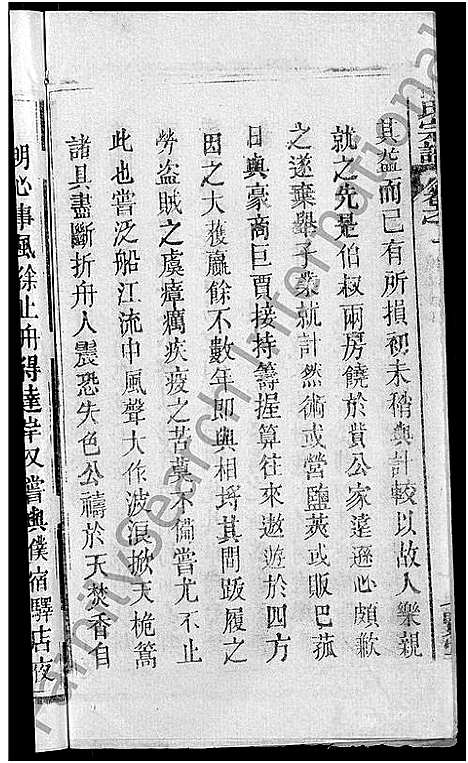 其益而已有所損初未稍與計較以故人樂親
就之先是伯叔兩房饒於貲公家遠遜心頗歉
之遂棄舉子業就計然術或營鹽莢或販巴菰
日與豪商巨賈接持籌握算往來遨遊於四方
因之大獲贏餘不數年即與相埒其間跋履之
勞盜賊之虞瘴癘疾疫之苦莫不備嘗尤不止
此也嘗泛船江流中風聲大作波浪掀天桅篙
諸具盡斷折舟人震恐失色公禱於天焚香自
明心事風徐止舟得達岸又嘗與僕宿驛店夜